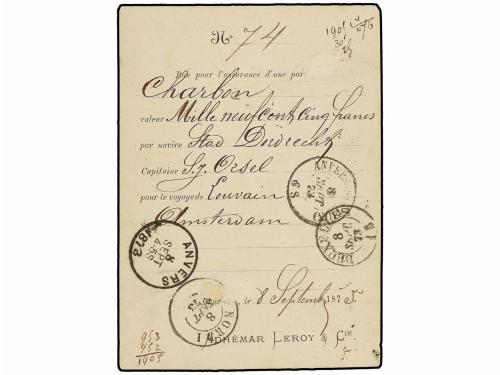 No 74
Bon pour l'assurance d'une par
Charbon
valeur Mille neuf cent cinq francs
par navire Stad Dordrecht
Capitaine S. J. Orsel
pour le voyage de Louvain
à Amsterdam
le 8 Septembre 1873
ADHÉMAR LEROY & Cie
ANVERS 8 SEPT
ANVERS 8 SEPT 1873
NORD 8 SEPT 73
953
952
1905